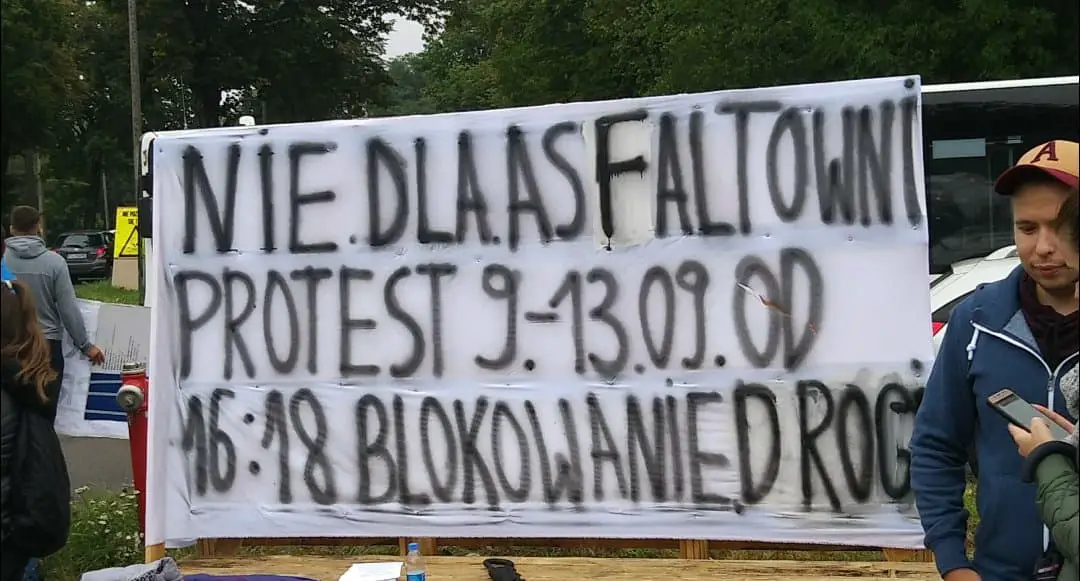 NIE.DLA.ASFALTOWNI
PROTEST 9.-13.09.OD
16:18 BLOKOWANIE DROGI
A